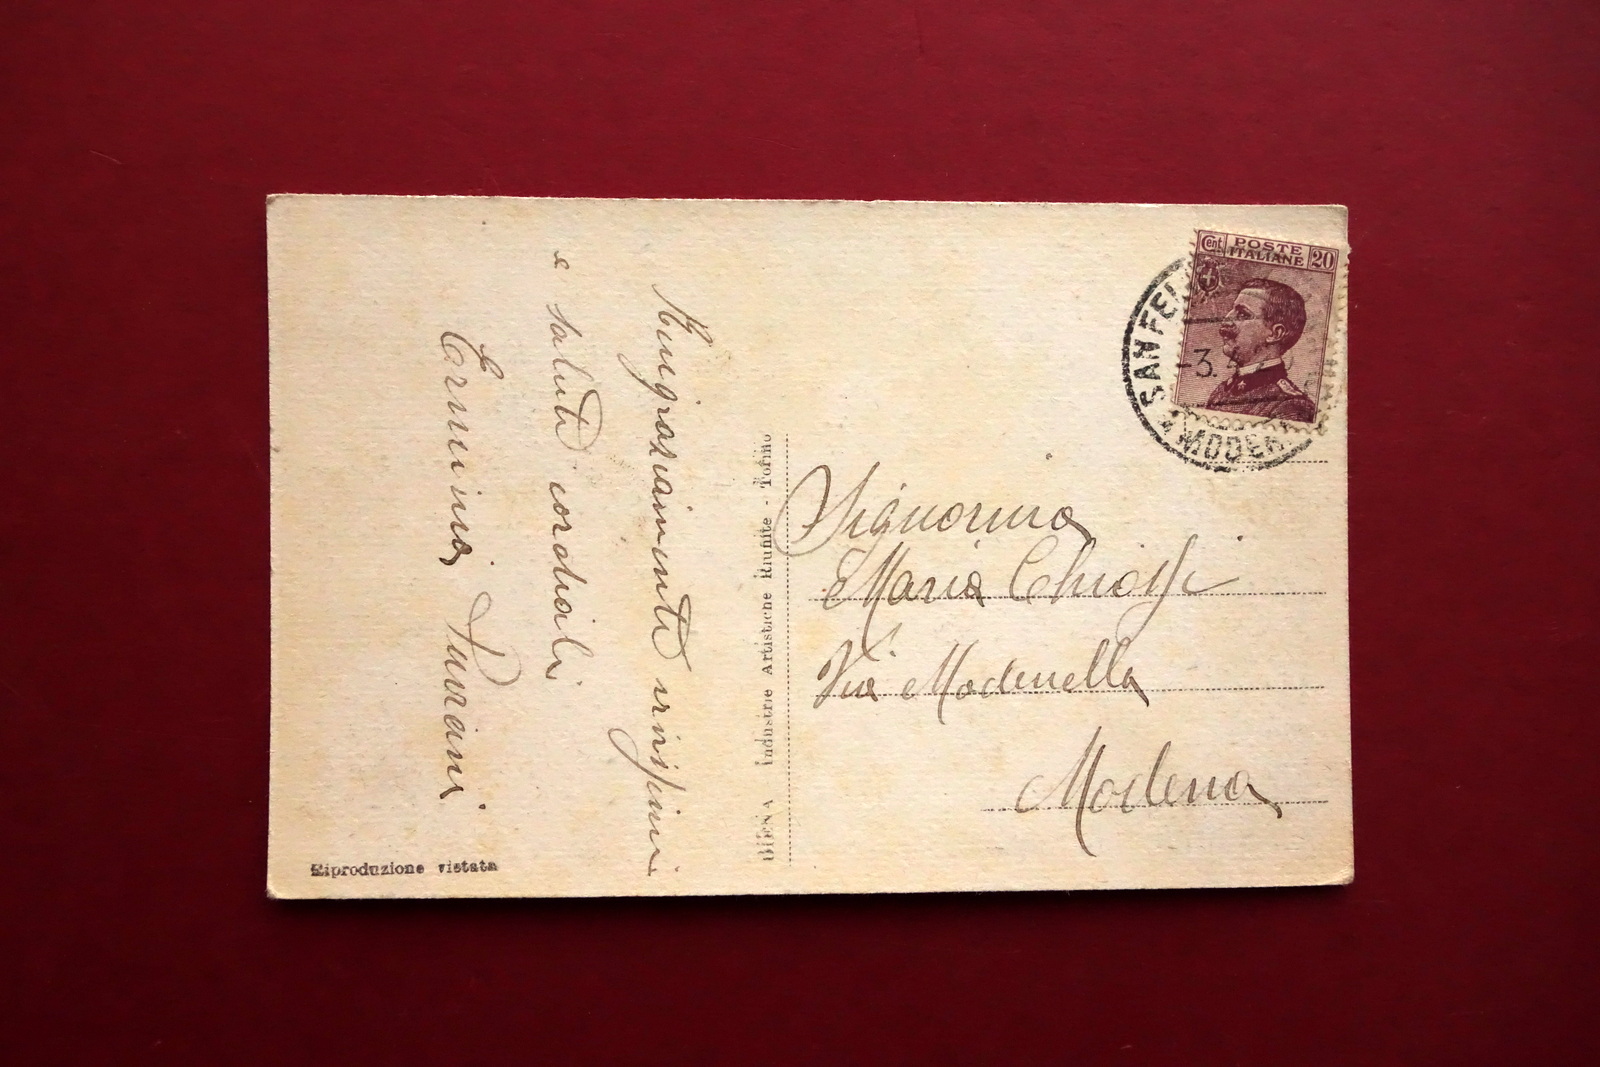 Ringraziamenti vivissimi
e saluti cordiali
Erminia Pavani
Riproduzione vietata
Industrie Artistiche Riunite - Torino
Cent. POSTE ITALIANE 20
SAN FELI
-3.
MODEN
Signorina
Maria Chiossi
Via Modenella
Modena